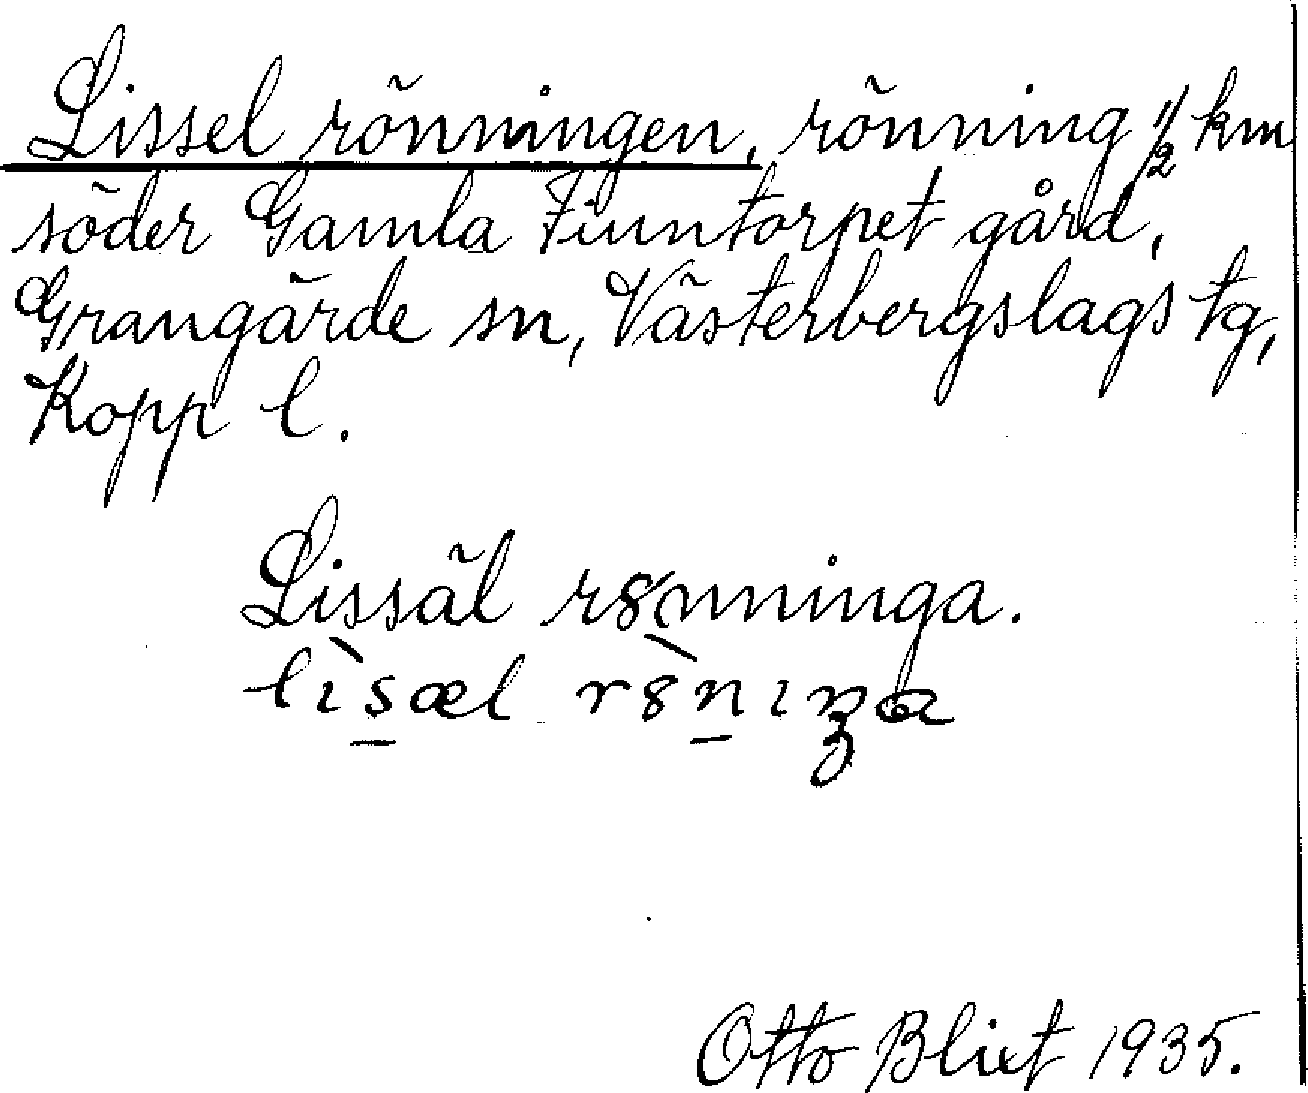 Lissel rönningen, rönning 1/2 km
söder Gamla Finntorpet gård,
Grangärde sn, Västerbergslags tg,
Kopp l.
Lissäl r8nninga.
lìs̠æl r8̀n̠ıŋa
Otto Blixt 1935.